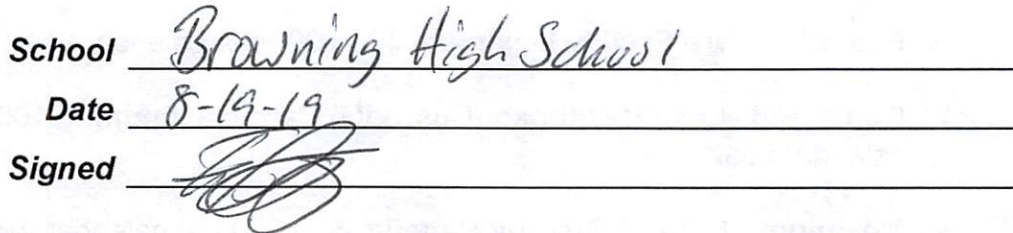 School Browning High School
Date 8-19-19
Signed